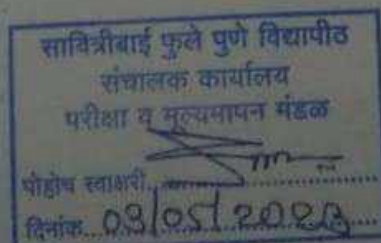 सावित्रीबाई फुले पुणे विद्यापीठ
संचालक कार्यालय
परीक्षा व मूल्यमापन मंडळ
पोहोच स्वाक्षरी
दिनांक 03/05/2023